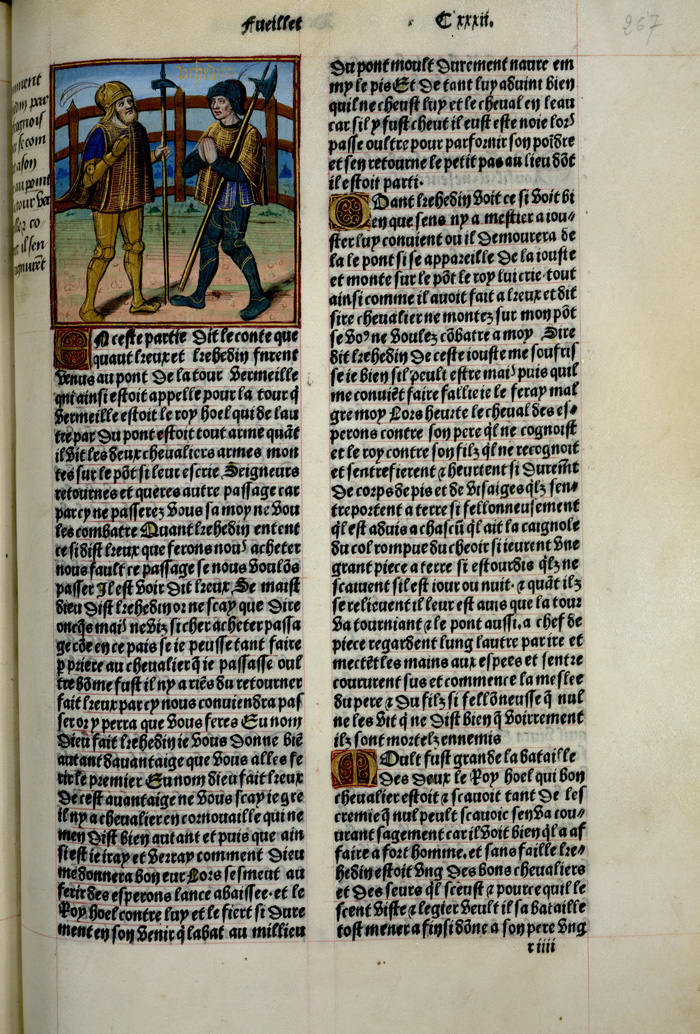 fueillet
C xxxii.
267
Kehedin
En ceste partie dit le conte que
quant kreux et krehedin furent
venus au pont de la tour vermeille
qui ainsi estoit appelle pour la tour q̃
vermeille estoit le roy hoel qui de lau
tre part du pont estoit tout arme quãt
il vit les deux cheualiers armes mon
tes sur le põt si leur escrie Seigneurs
retournes et queres autre passage car
par cy ne passerez vous sa moy ne vou
les combatre Quant krehedin entent
ce si dist kreux que ferons nous acheter
nous fault ce passage se nous voulõs
passer Il est voir dit kreux, Se maist
dieu dist krehedin or ne scay que dire
oncq̃s mais ne viz si cher acheter passa
ge cõe en ce pais se ie peusse tant faire
p priere au cheualier q̃ ie passasse oul
tre bõme fust il ny a riẽs du retourner
fait kreux par cy nous conuiendra pas
ser or y perra que vous feres Eu nom
Dieu fait krehedin ie vous donne biẽ
autant dauantaige que vous alles fe
rir le premier Eu nom dieu fait kreux
De cest auantaige ne vous scay ie gre
il ny a cheualier en cornouaille qui ne
men dist bien autant et puis que ain
si est ie iray et verray comment Dieu
me donnera bon eur Lors se smeut au
ferir des esperons lance abaissee. et le
Roy hoel contre luy et le fiert si dure
ment en son venir q̃ labat au millieu
du pont moult durement naure em
my le pis Et de tant luy aduint bien
quil ne cheust luy et le cheual en leau
car sil y fust cheut il eust este noie lors
passe oultre pour parfornir son poĩdre
et sen retourne le petit pas au lieu dõt
il estoit parti.
Quant krehedin voit ce si voit bi
en que sens ny a mestier a iou-
ster luy conuient ou il demourera de
la le pont si se appareille de la iouste
et monte sur le põt le roy lui crie. tout
ainsi comme il auoit fait a kreux et dit
sire cheualier ne montez sur mon põt
se vo9 ne voulez cõbatre a moy Sire
dit krehedin de ceste iouste me soufris
se ie bien sil peult estre mais puis quil
me conuiẽt faire fallie ie le feray mal
gre moy Lors heurte le cheual des es-
perons contre son pere q̃l ne cognoist
et le roy contre son filz q̃l ne recognoit
et sentrefierent & heurtent si duremẽt
De corps de pis et de visaiges q̃lz sen-
treportent a terre si fellonneusement
q̃l est aduis a chascũ q̃l ait la caignole
du col rompue du cheoir si ieurent vne
grant piece a terre si estourdis q̃lz ne
scauent sil est iour ou nuit. & quãt ilz
se relieuent il leur est auis que la tour
va tourniant & le pont aussi. a chef de
piece regardent lung lautre par ire et
mectẽt les mains aux espees et sentre
coururent sus et commence la meslee
du pere & du filz si fellõneusse q̃ nul
ne les vit q̃ ne dist bien q̃ voirement
ilz sont mortelz ennemis
Moult fust grande la bataille
Des deux le Roy hoel qui bon
cheualier estoit & scauoit tant de les
cremie q̃ nul peult scauoic sen va cou-
urant sagement car il voit bien q̃l a af
faire a fort homme. et sans faille kre-
hedin estoit vng des bons cheualiers
et des seurs q̃l sceust & pource quil le
scent viste & legier veult il sa bataille
tost mener a fin si dõne a son pere vng
r iiii